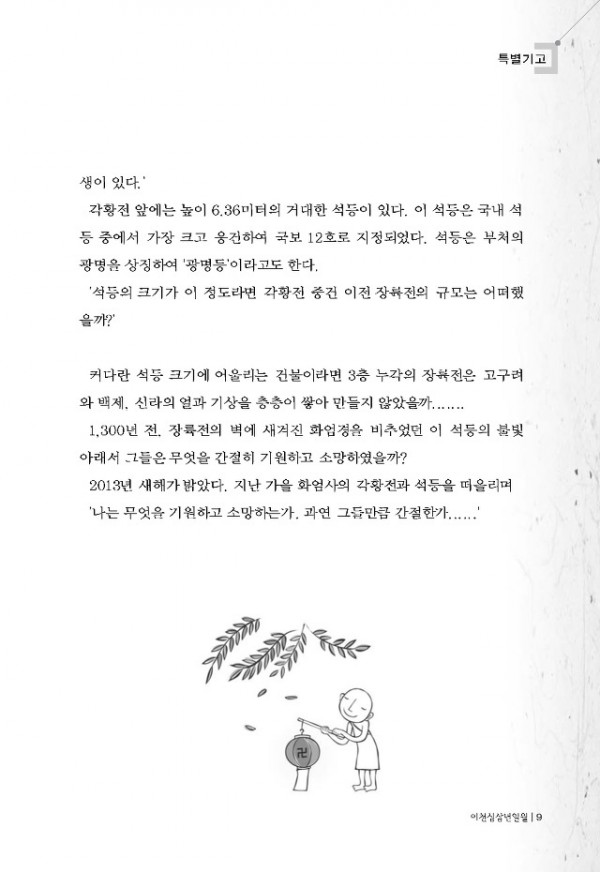 특별기고
생이 있다.'
각황전 앞에는 높이 6.36미터의 거대한 석등이 있다. 이 석등은 국내 석
등 중에서 가장 크고 웅건하여 국보 12호로 지정되었다. 석등은 부처의
광명을 상징하여 '광명등'이라고도 한다.
'석등의 크기가 이 정도라면 각황전 중건 이전 장륙전의 규모는 어떠했
을까?'
커다란 석등 크기에 어울리는 건물이라면 3층 누각의 장륙전은 고구려
와 백제, 신라의 얼과 기상을 층층이 쌓아 만들지 않았을까.......
1,300년 전, 장륙전의 벽에 새겨진 화엄경을 비추었던 이 석등의 불빛
아래서 그들은 무엇을 간절히 기원하고 소망하였을까?
2013년 새해가 밝았다. 지난 가을 화엄사의 각황전과 석등을 떠올리며
'나는 무엇을 기원하고 소망하는가, 과연 그들만큼 간절한가......'
卍
이천십삼년일월 | 9